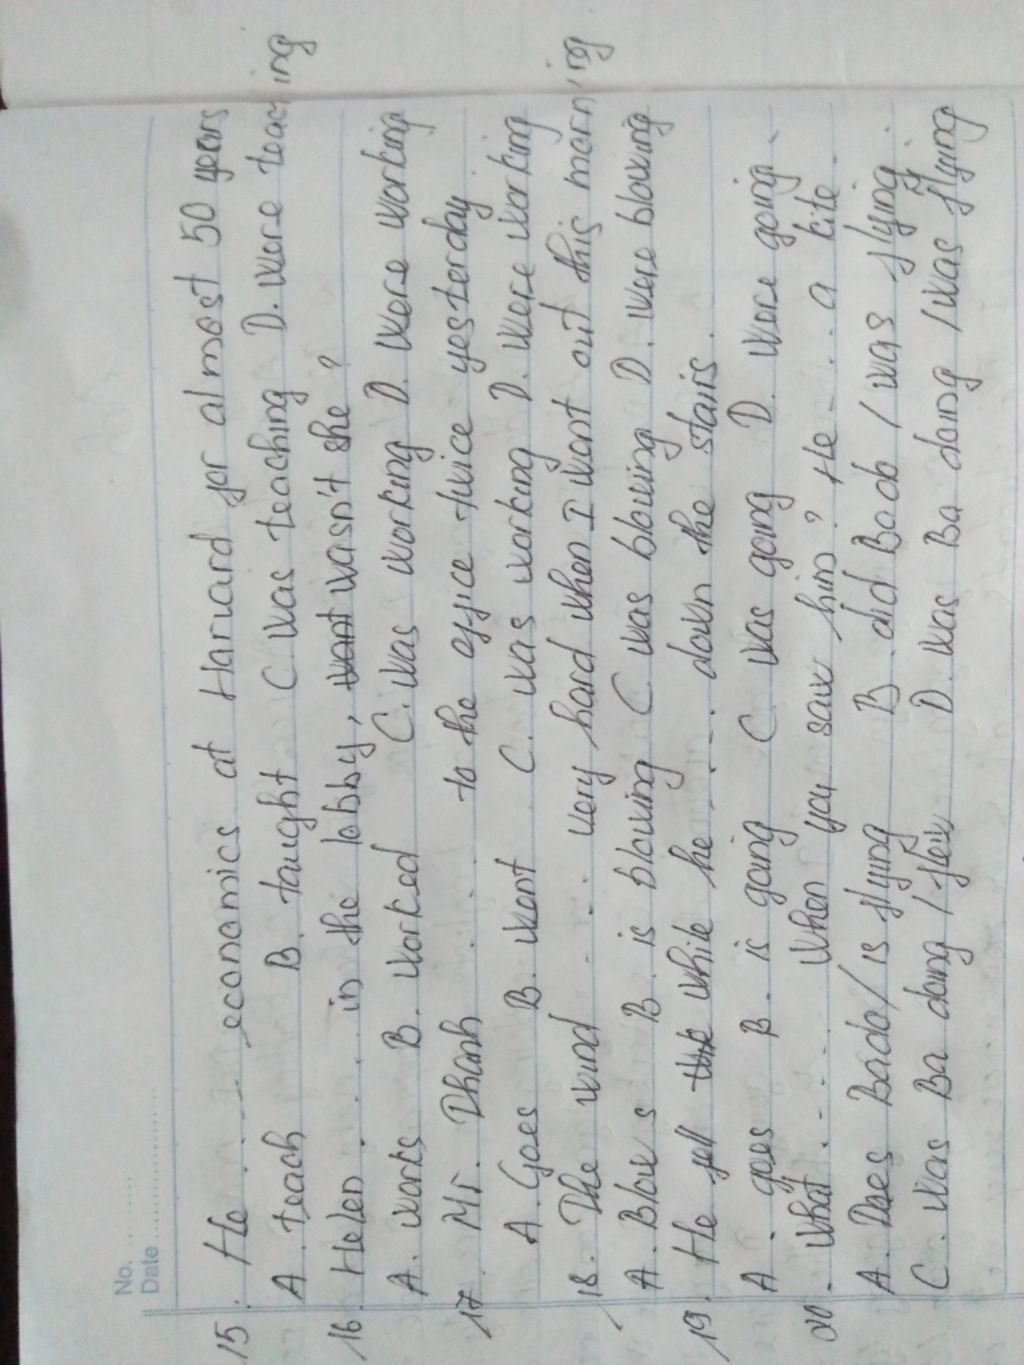 No. ............
Date ....................
15. He ....... economics at Harvard for almost 50 years
A. teach B. taught C was teaching D. were teaching
16. Helen .... in the lobby, want wasn't she?
A. works B. worked C. was working D. were working
17. Mr. Thanh .... to the office twice yesterday.
A. Goes B. went C. was working D. were working
18. The wind .... very hard when I went out this morning
A. Blows B. is blowing C. was blowing D. were blowing
19. He fell while he .... down the stairs.
A. goes B. is going C was going D. were going.
20. What .... when you saw him? He .... a kite.
A. Does Bado / is flying B did Ba do / was flying.
C. was Ba doing / flew D. was Ba doing / was flying